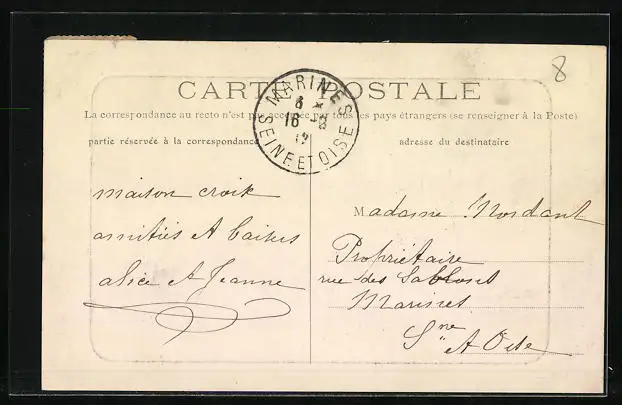 8
CARTE POSTALE
La correspondance au recto n'est pas acceptée par tous les pays étrangers (se renseigner à la Poste)
partie réservée à la correspondance
adresse du destinataire
MARINES
8
16 - 8
12
SEINE ET OISE
maison croix
amitiés et baisers
alice et Jeanne
Madame Mordant
Propriétaire
rue des Sablons
Marines
Sne
et Oise